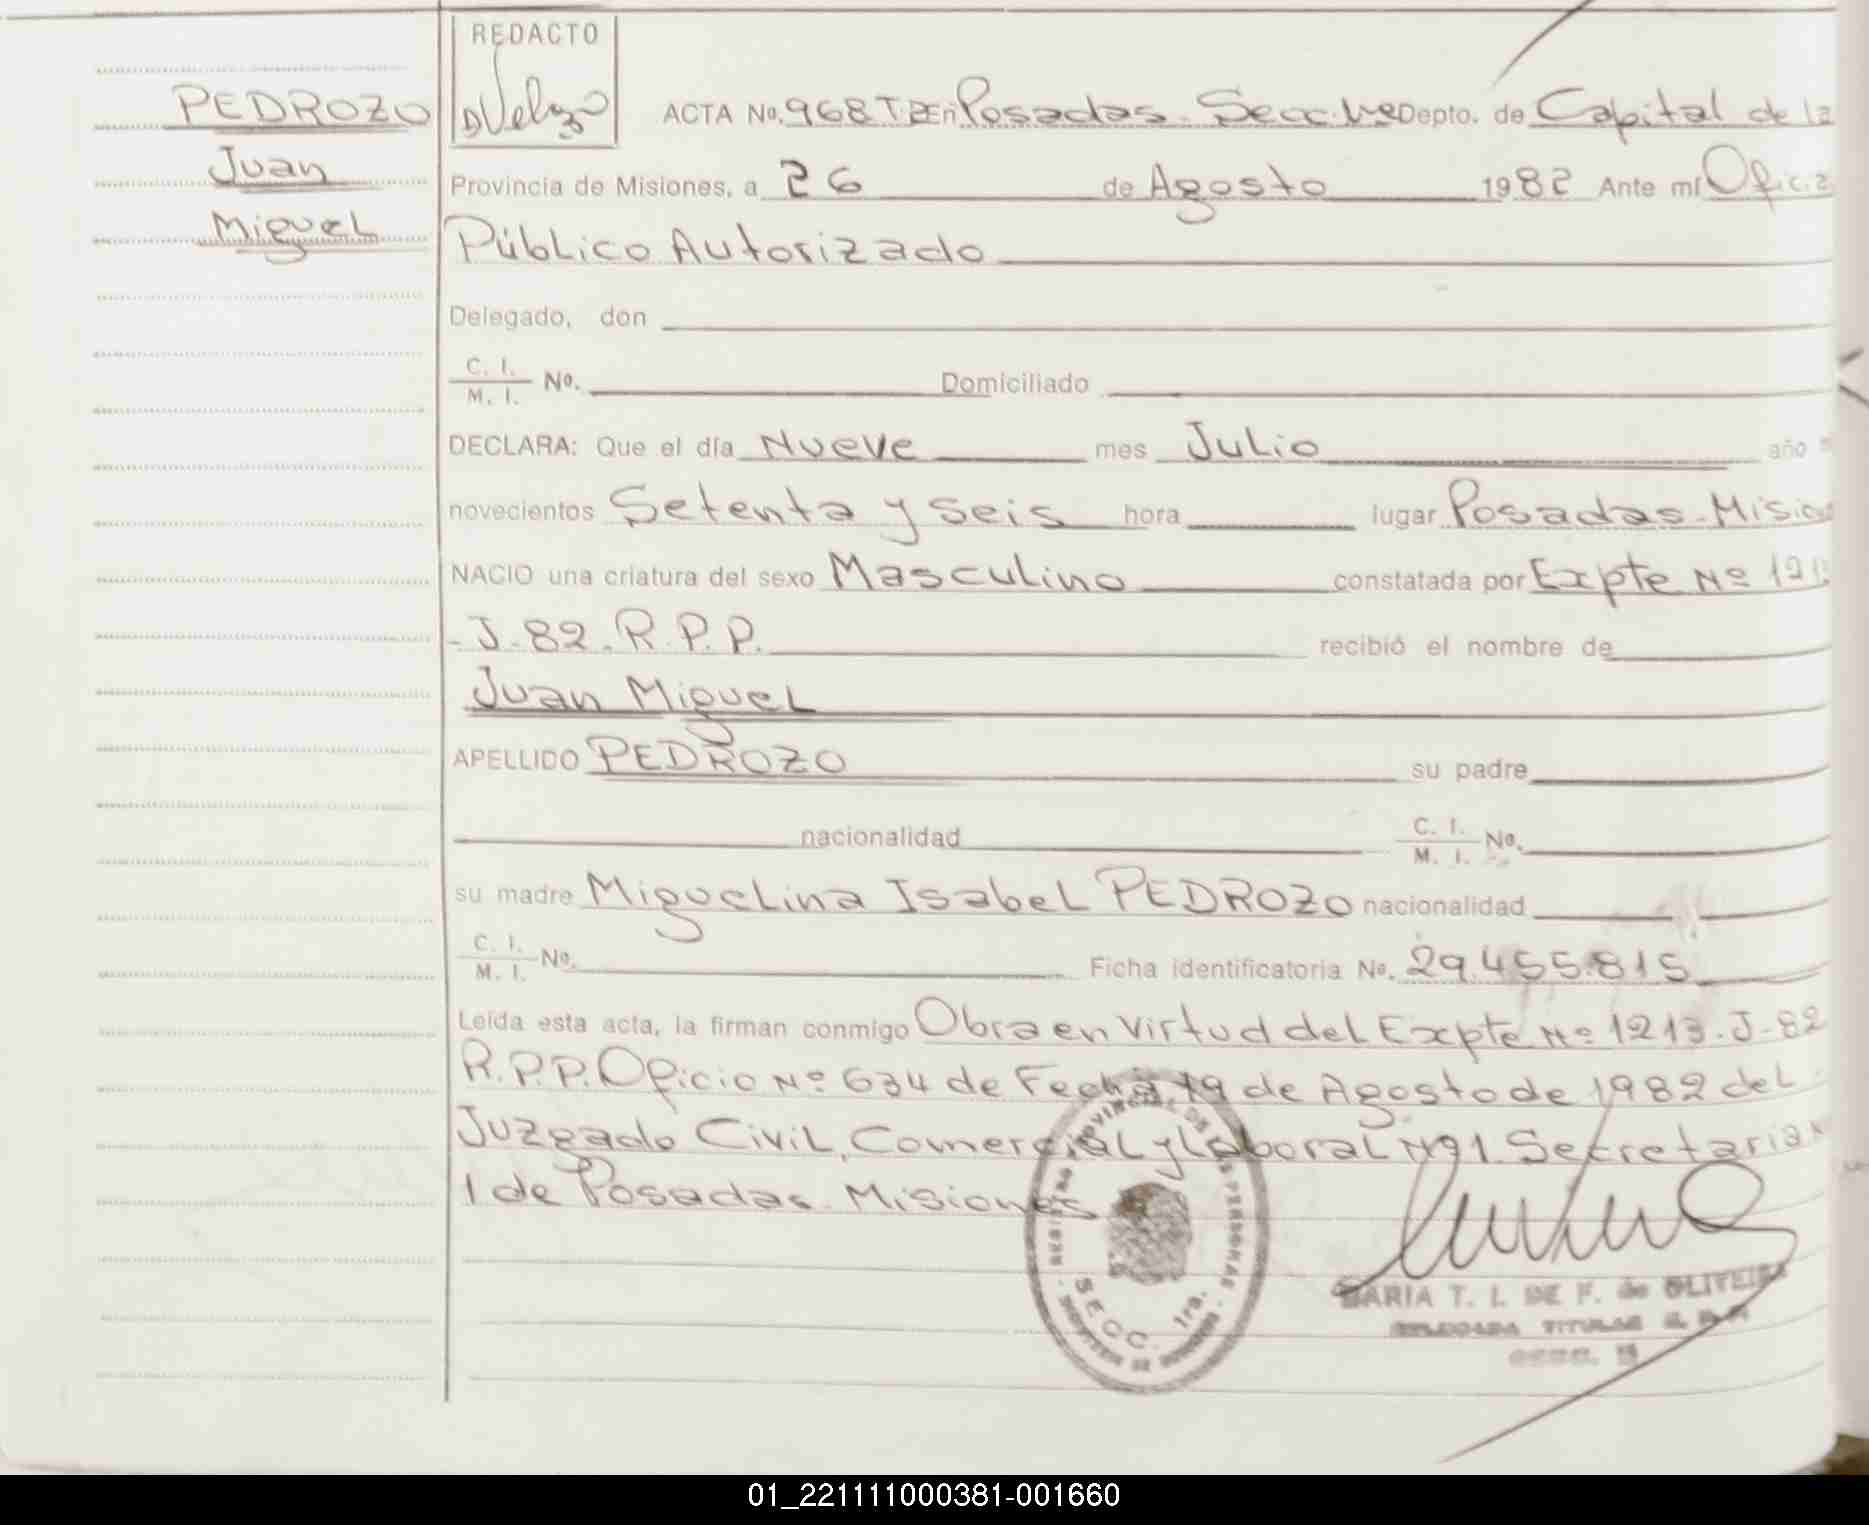 REDACTO
PEDROZO
Juan
Miguel
ACTA No. 968 T. 2 En Posadas. Secc. 1ra Depto. de Capital de la
Provincia de Misiones, a 26 de Agosto 1982 Ante mí Oficia
Público Autorizado
Delegado, don
C. I. / M. I. No. Domiciliado
DECLARA: Que el día Nueve mes Julio año
novecientos Setenta y seis hora lugar Posadas. Misio
NACIO una criatura del sexo Masculino constatada por Expte Nº 121
- J - 82. R. P. P. recibió el nombre de
Juan Miguel
APELLIDO PEDROZO su padre
nacionalidad C. I. / M. I. No.
su madre Miguelina Isabel PEDROZO nacionalidad
C. I. / M. I. No. Ficha identificatoria No. 29.455.815
Leída esta acta, la firman conmigo Obra en Virtud del Expte Nº 1213. J-82
R.P.P. Oficio Nº 634 de Fecha 19 de Agosto de 1982 del
Juzgado Civil, Comercial y Laboral Nº 1. Secretaria Nº
1 de Posadas. Misiones
SECC. 1ra.
MARIA T. I. DE F. de OLIVEIRA
DELEGADA TITULAR
SECC.
01_221111000381-001660